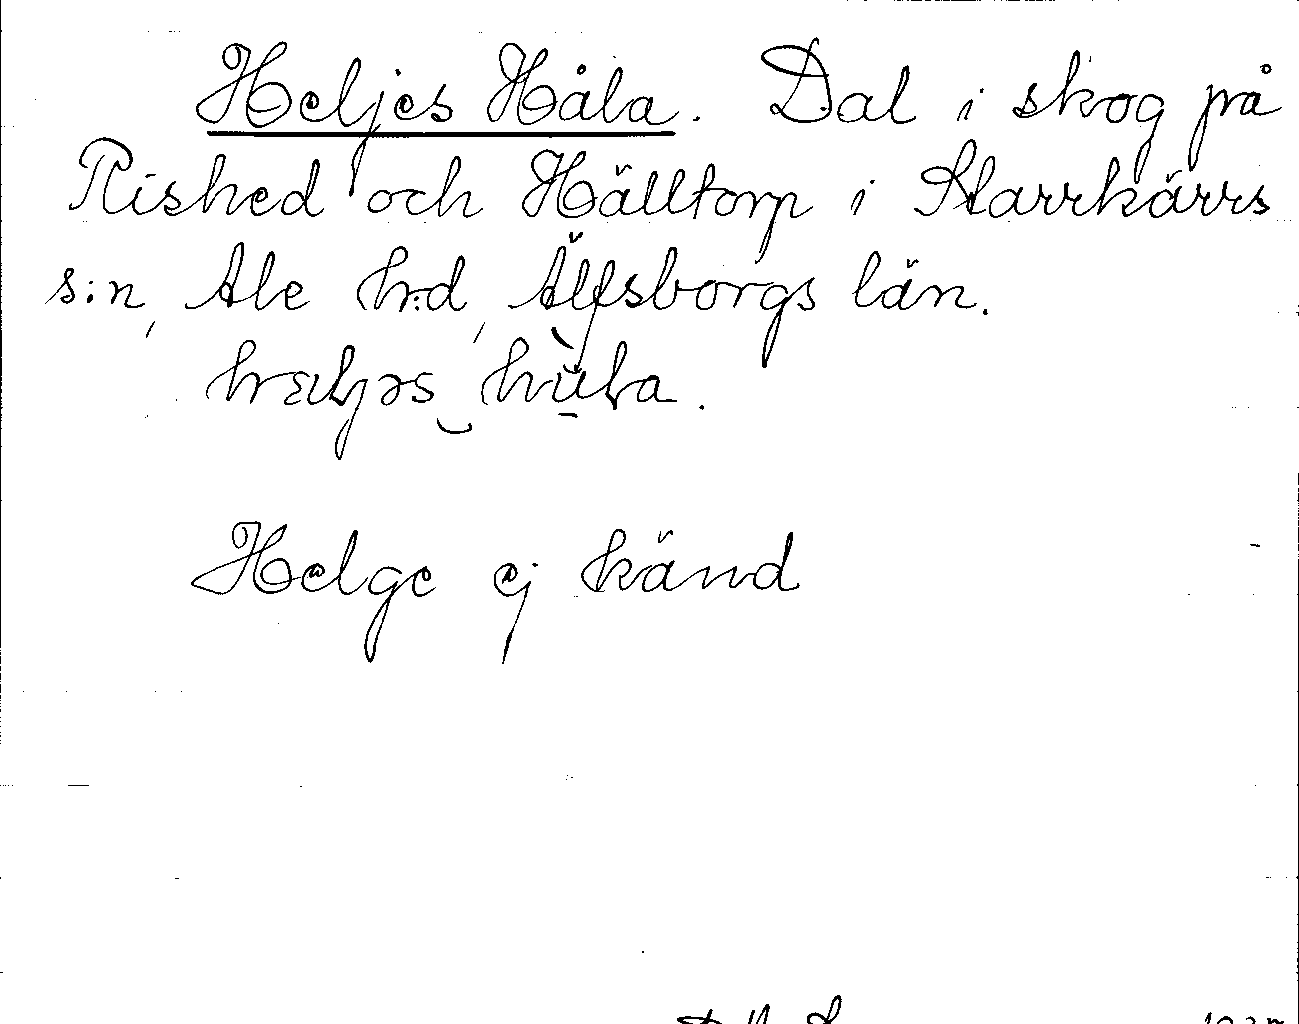 Heljes Håla. Dal i skog på
Rished och Hälltorp i Starrkärrs
s:n, Ale h:d, Älfsborgs län.
Helge ej känd